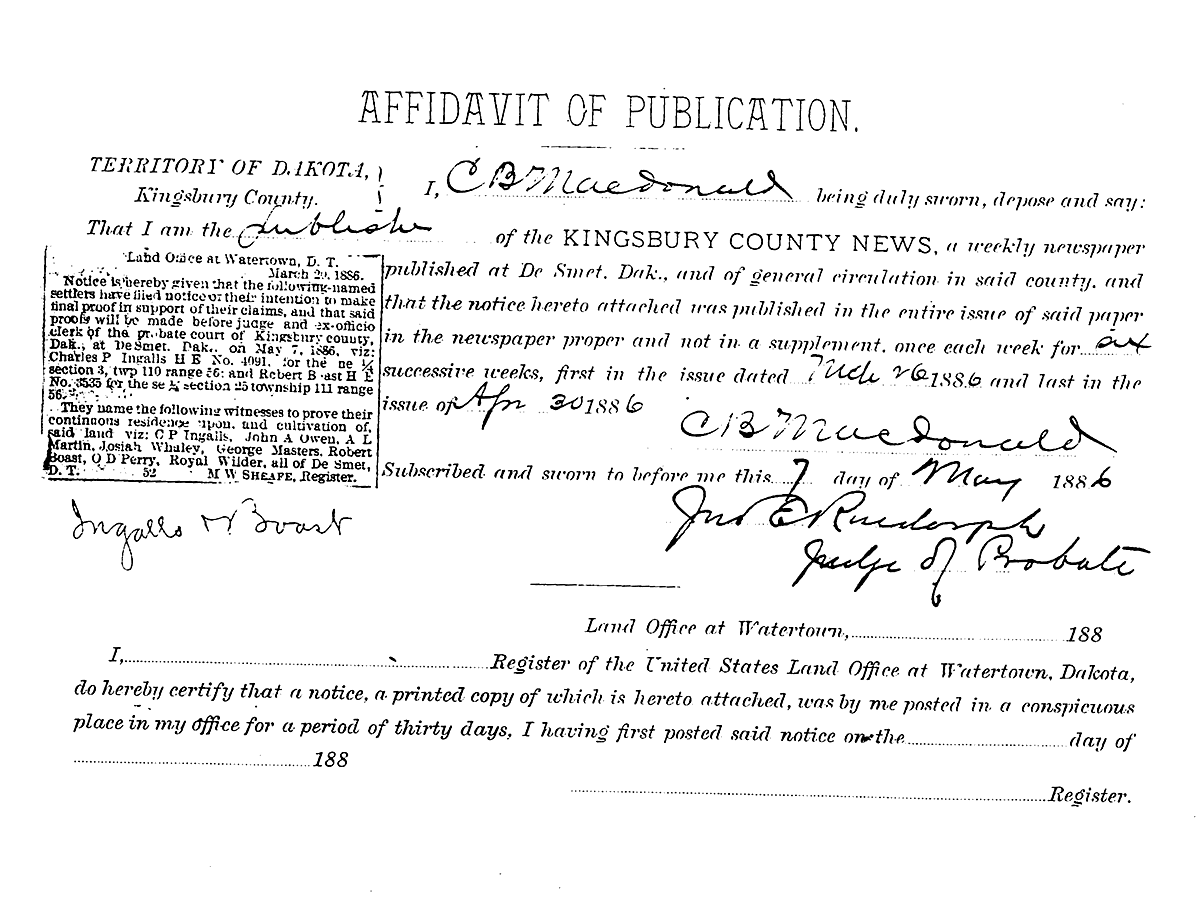 AFFIDAVIT OF PUBLICATION.
TERRITORY OF DAKOTA,
Kingsbury County.
I, C B Macdonald being duly sworn, depose and say:
That I am the publisher of the KINGSBURY COUNTY NEWS, a weekly newspaper
published at De Smet, Dak., and of general circulation in said county, and
that the notice hereto attached was published in the entire issue of said paper
in the newspaper proper and not in a supplement, once each week for six
successive weeks, first in the issue dated Mch 26 1886 and last in the
issue of Apr 30 1886
C B Macdonald
Subscribed and sworn to before me this 7 day of May 1886
Jno E Ruedorph
Judge of Probate
Land Office at Watertown, D. T.
March 20, 1886.
Notice is hereby given that the following-named
settlers have filed notice of their intention to make
final proof in support of their claims, and that said
proofs will be made before judge and ex-officio
clerk of the probate court of Kingsbury county,
Dak., at DeSmet, Dak., on May 7, 1886, viz:
Charles P Ingalls H E No. 4091, for the ne ¼
section 3, twp 110 range 56; and Robert Boast H E
No. 3535 for the se ¼ section 25 township 111 range
56.
They name the following witnesses to prove their
continuous residence upon, and cultivation of,
said land viz: C P Ingalls, John A Owen, A L
Martin, Josiah Whaley, George Masters, Robert
Boast, O D Perry, Royal Wilder, all of De Smet,
D. T. 52 M W SHEAFE, Register.
Ingalls & Boast
Land Office at Watertown, 188
I, Register of the United States Land Office at Watertown, Dakota,
do hereby certify that a notice, a printed copy of which is hereto attached, was by me posted in a conspicuous
place in my office for a period of thirty days, I having first posted said notice on the day of
188
Register.